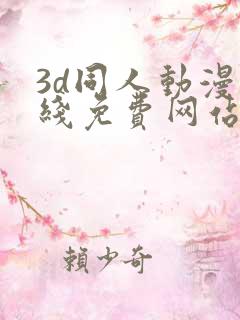 3d同人動漫
綫免費网佔
賴少奇